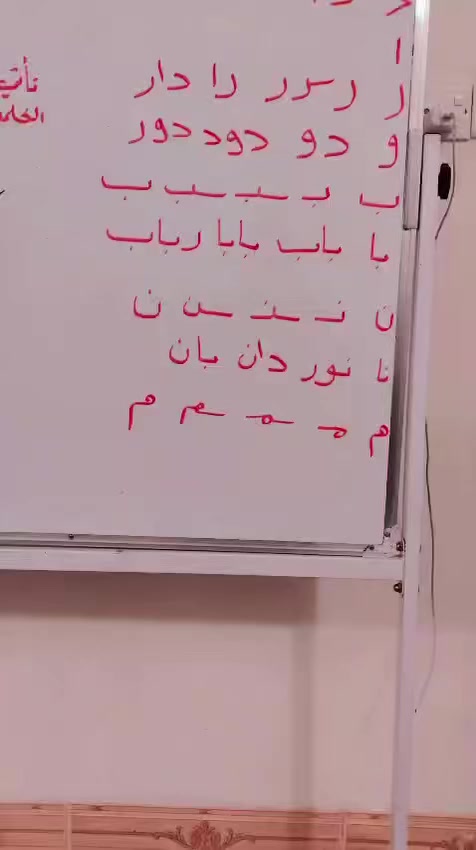 ا
ر ر ـر ر را دار
و دو دود دور
ب بـ ـبـ ـب ب
با باب بابا رباب
ن نـ ـنـ ـن ن
نا نور دان بان
م مـ ـمـ ـم م